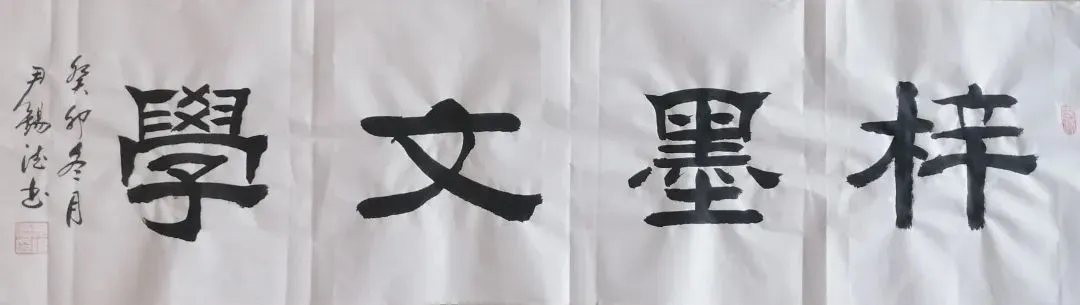 梓墨文學
癸卯冬月
尹錫德书